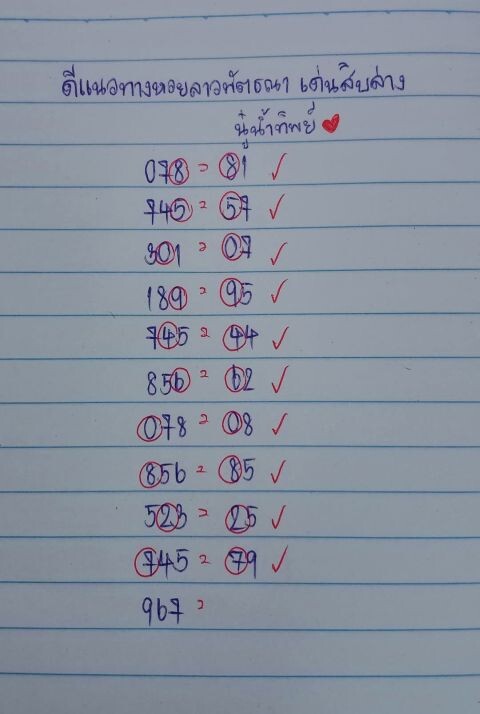 ดีแนวทางหวยลาวพัฒนา เด่นสิบล่าง
นู๋น้ำทิพย์
078 = 81 ✓
745 = 57 ✓
301 = 07 ✓
189 = 95 ✓
745 = 44 ✓
856 = 62 ✓
078 = 08 ✓
856 = 85 ✓
523 = 25 ✓
745 = 79 ✓
967 =